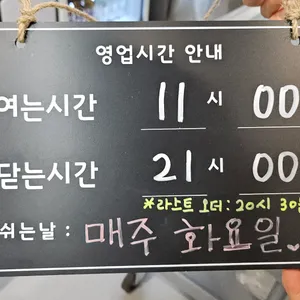 영업시간 안내
여는시간 11시 00
닫는시간 21시 00
*라스트 오더: 20시 30분
쉬는날 : 매주 화요일